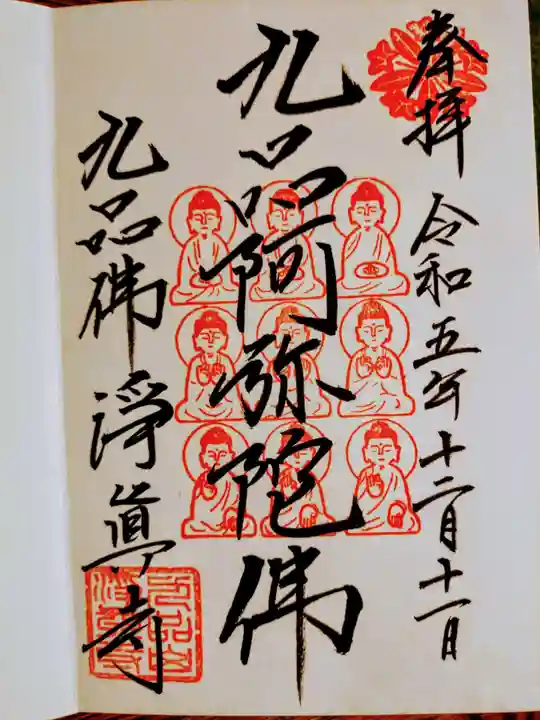 奉拝 令和五年十二月十一日
九品阿弥陀佛
九品佛 淨眞寺